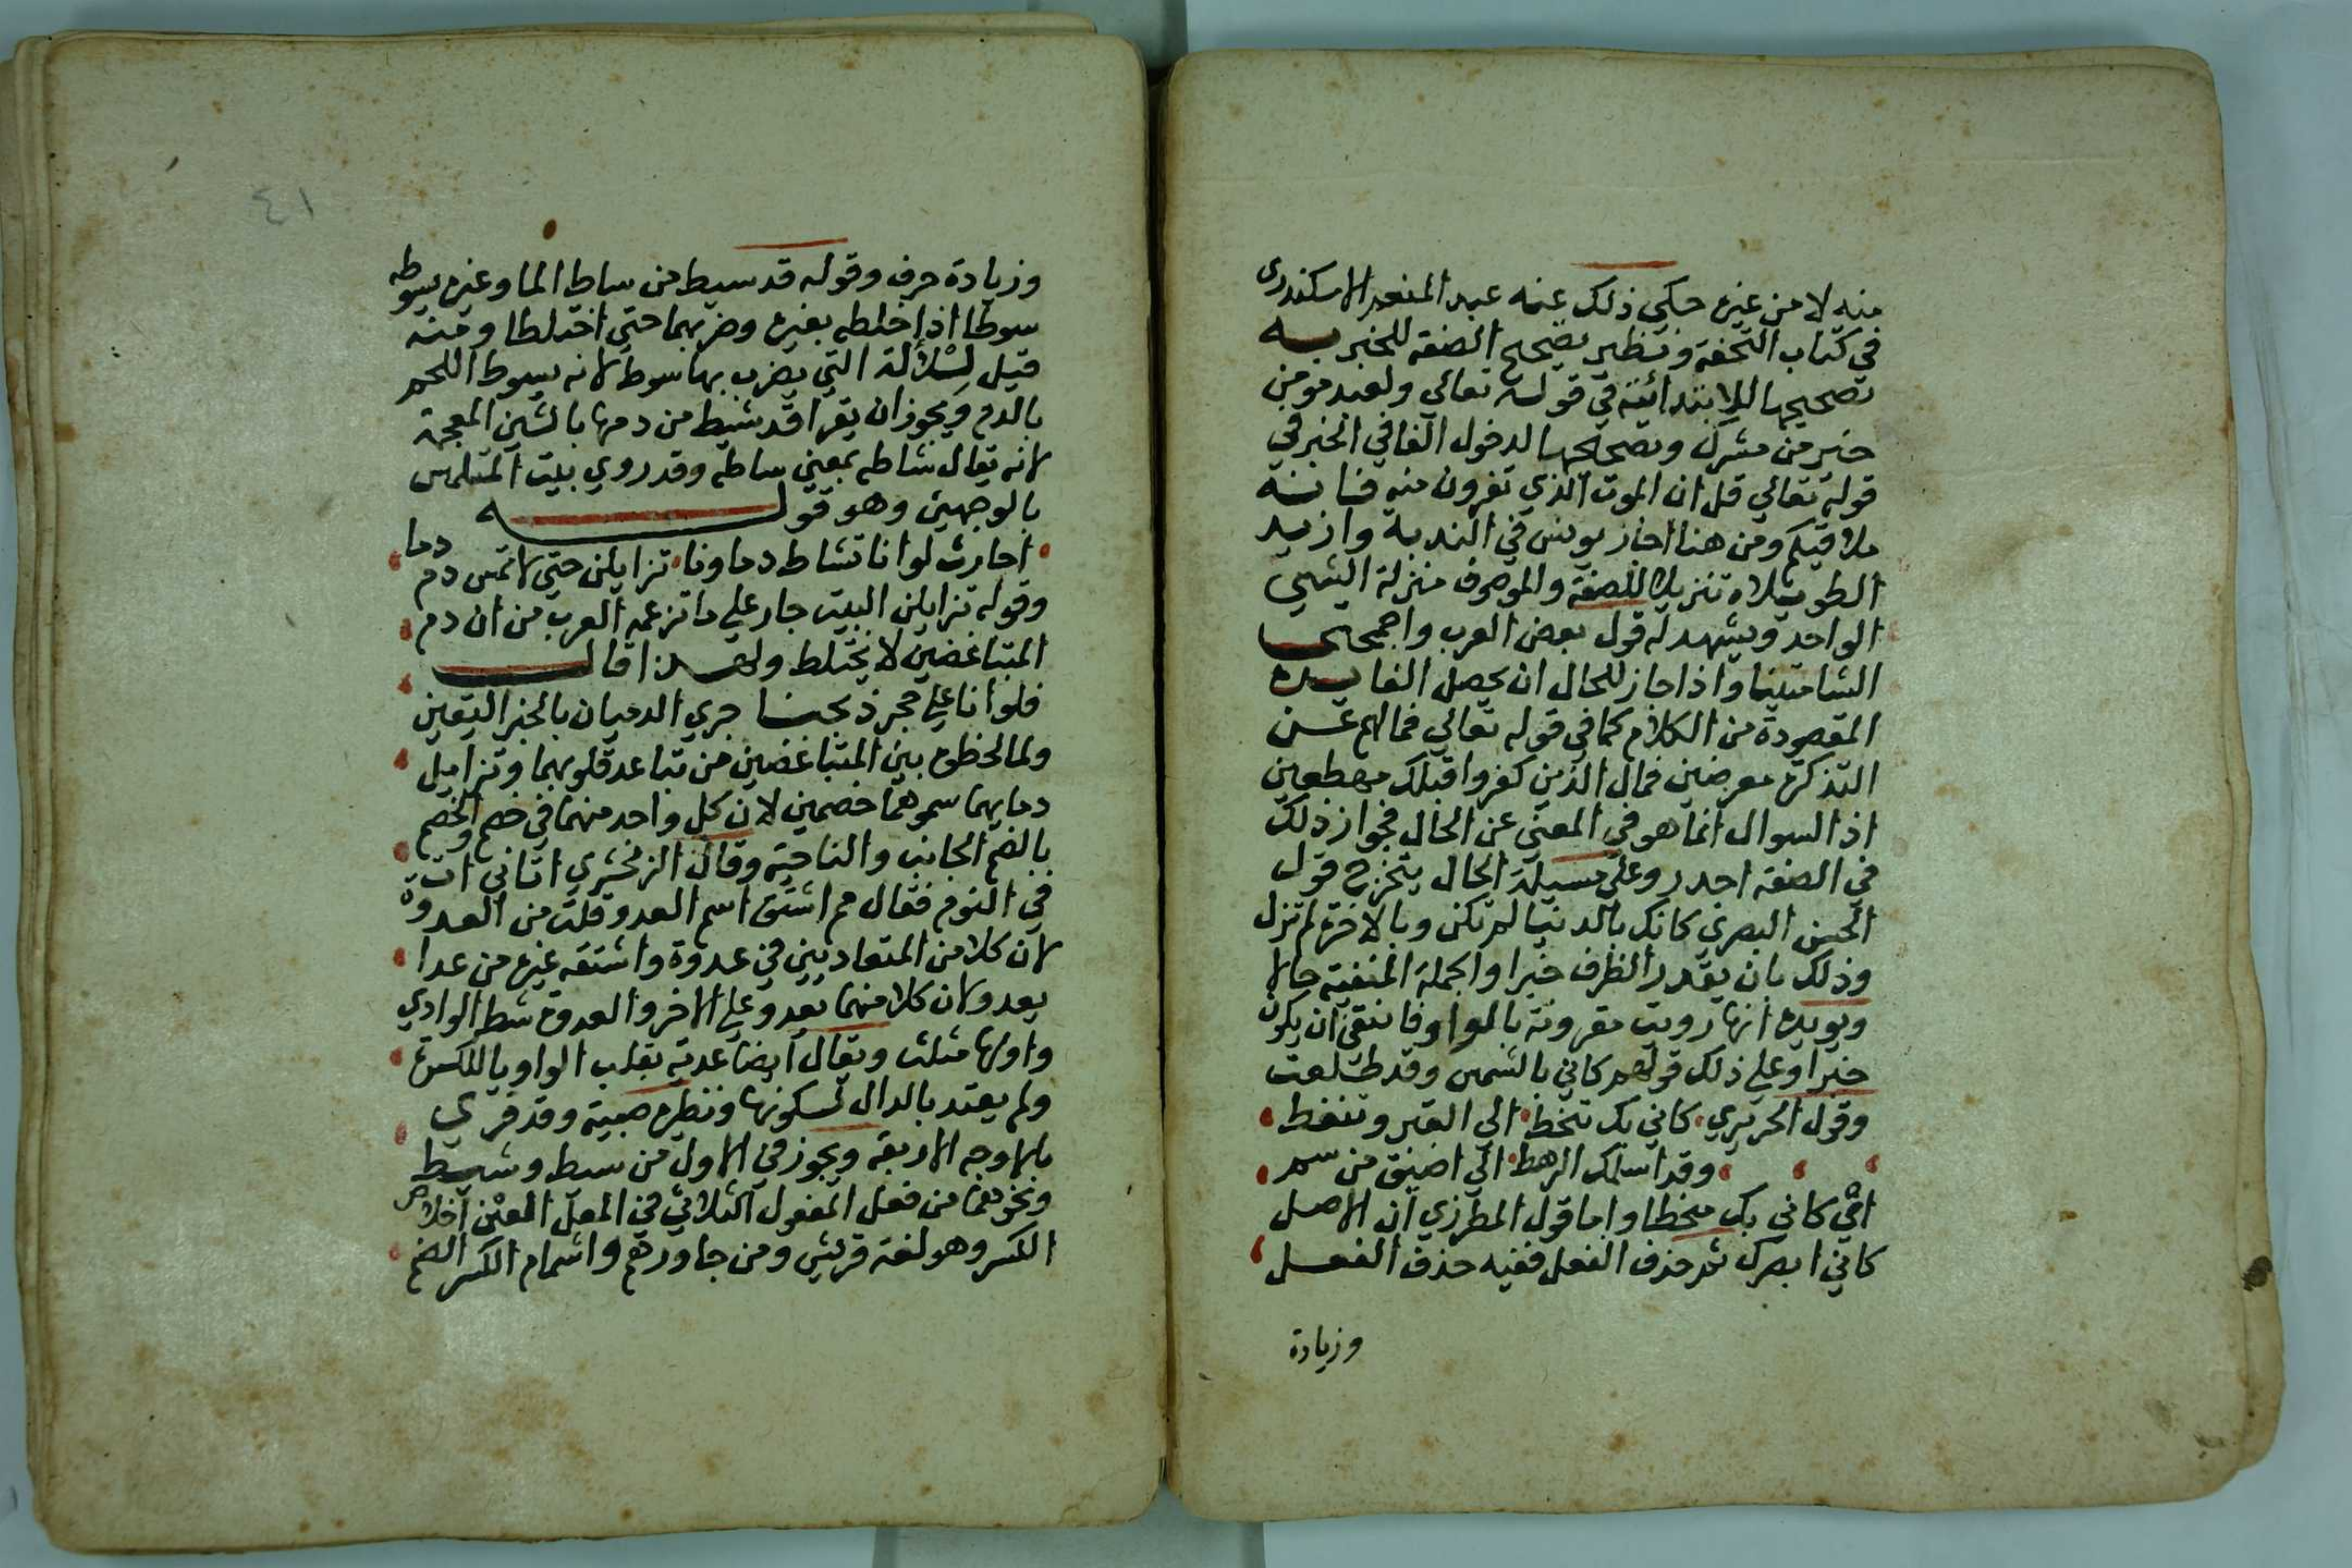 منه لا من غيره حكي ذلك عنه عبد المنعم الاسكندري
في كتاب التحفة ونظير تصحيح الصفة للخبريه
تصحيحها للابتدائية في قوله تعالي ولعبد مومن
خير من مشرك وتصحيحها لدخول الفا في الخبر في
قوله تعالي قل ان الموت الذي تفرون منه فانه
ملاقيكم ومن هنا اجاز يونس في الندبة وازيد
الطويلاه تنزيلا للصفة والموصوف منزلة الشي
الواحد ويشهد له قول بعض العرب واجمجمتي
الشاميتيناه واذا جاز للحال ان يحصل الفايدة
المقصودة من الكلام كما في قوله تعالي فما لهم عن
التذكرة معرضين فمال الذين كفروا قبلك مهطعين
اذ السوال انما هو في المعني عن الحال فجواز ذلك
في الصفة اجدر وعلي مسيلة الحال يتخرج قول
الحسن البصري كانك بالدنيا لم تكن وبالاخرة لم تزل
وذلك بان يقدر الظرف خبرا والجملة المنفية حالا
ويويده انها رويت مقرونة بالواو فانتفي ان يكون
خبرا وعلي ذلك قولهم كاني بالشمس وقد طلعت
وقول الحريري كاني بك تنحط الي القبر وتنغط
وقد اسلمك الرهط الي اضيق من سم
اي كاني بك منحطا واما قول المطرزي ان الاصل
كاني ابصرك ثم حذف الفعل ففيه حذف الفعل
وزيادة
٤١
وزيادة حرف وقوله قد سيط من ساط الما وغيره يسوطه
سوطا اذا خلطه بغيره وضربهما حتي اختلطا ومنه
قيل للآلة التي يضرب بها سوط لانه يسوط اللحم
بالدم ويجوز ان يقرا قد شيط من دمها بالشين المعجمة
لانه يقال شاطه بمعني ساطه وقد روي بيت المتلمس
بالوجهين وهو قوله
احارث لو انا تشاط دماونا تزايلن حتي لا تمس دم دما
وقوله تزايلن البيت جار علي ما تزعمه العرب من ان دم
المتباغضين لا يختلط ولهذا قال
فلو انا علي حجر ذبحنا جري الدميان بالخبر اليقين
ولما لحظوه بين المتباغضين من تباعد قلوبهما وتزايل
دمايهما سموهما خصمين لان كل واحد منهما في خصم والخصم
بالضم الجانب والناحية وقال الزمخشري اتاني ات
في النوم فقال مم اشتق اسم العدو قلت من العدوة
لان كلا من المتعاديين في عدوة واشتقه غيره من عدا
يعدو لان كلا منهما يعدو علي الاخر والعدوة شط الوادي
واولها مثلث ويقال ايضا عدية بقلب الواو يا للكسرة
ولم يعتد بالدال لسكونها ونظيره صبية وقد قري
بالاوجه الاربعة ويجوز في الاول من سيط وشيط
ونحوهما من فعل المفعول الثلاثي في المعل العين اخلاص
الكسر وهو لغة قريش ومن جاورهم واشمام الكسر الضم